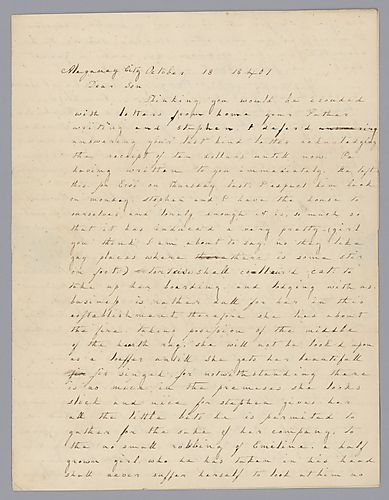 Alegany City October 18 1840
Dear Son
Thinking you would be crouded
with letters from home your Father
writing and stephen I deferd
answering your last kind letter acknowledging
the receipt of ten dollars untill now. Pa
having written to you immediately. He left
this for Erie on thursday last. I expect him back
on monday. stephen and I have the house to
ourselves and lonely enough it is, so much so
that it has induced a very pretty (girl
you think I am about to say, no they like
gay places where there is some stir
on foot) tortoise shell cat to
take up her boarding and lodging with us.
business is rather dull for her in this
establishment therefore she lies about
the fire taking possession of the middle
of the hearth rug. she will not be look'd upon
as a loffer untill she gets her beautifull
fur singed, for notwithstanding there
is no mice in the premeses she looks
sleek and nice for stephen gives her
all the little bits he is permitted to
gather for the sake of her company. to
the no small robbing of Emeline. a half
grown girl who he has taken in his head
shall never suffer herself to look at him no